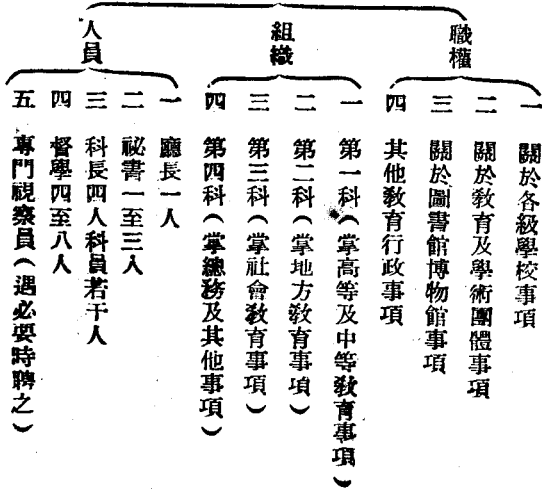 職權
一 關於各級學校事項
二 關於教育及學術團體事項
三 關於圖書館博物館事項
四 其他教育行政事項
組織
一 第一科（掌高等及中等教育事項）
二 第二科（掌地方教育事項）
三 第三科（掌社會教育事項）
四 第四科（掌總務及其他事項）
人員
一 廳長一人
二 祕書一至三人
三 科長四人科員若干人
四 督學四至八人
五 專門視察員（遇必要時聘之）